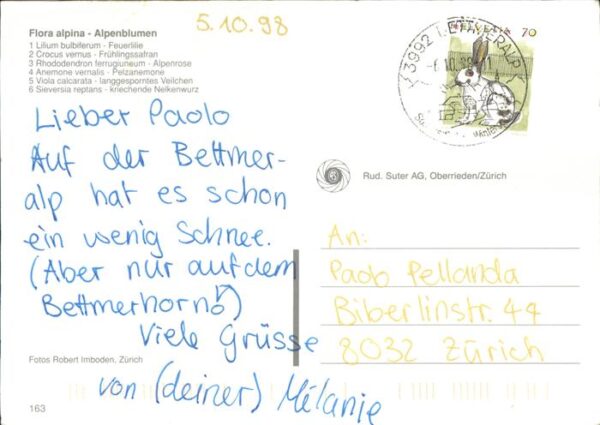 5.10.98
Flora alpina - Alpenblumen
1 Lilium bulbiferum - Feuerlilie
2 Crocus vernus - Frühlingssafran
3 Rhododendron ferrugineum - Alpenrose
4 Anemone vernalis - Pelzanemone
5 Viola calcarata - langgesporntes Veilchen
6 Sieversia reptans - kriechende Nelkenwurz
HELVETIA 70
3992 BETTMERALP
Lieber Paolo
Auf der Bettmer-
alp hat es schon
ein wenig Schnee.
(Aber nur auf dem
Bettmerhorn!)
Viele Grüsse
von (deiner) Mélanie
Rud. Suter AG, Oberrieden/Zürich
An:
Paolo Pellanda
Biberlinstr. 44
8032 Zürich
Fotos Robert Imboden, Zürich
163